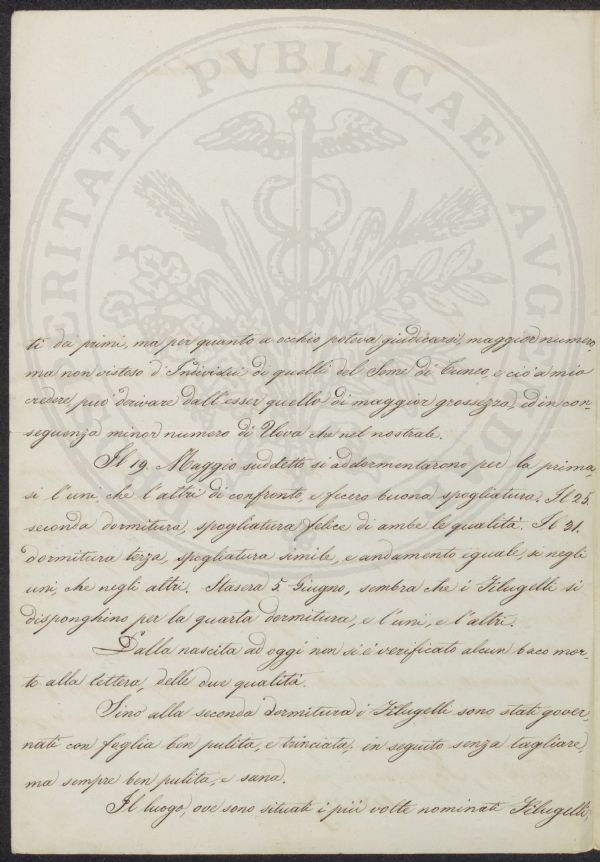 PROSPERITATI PVBLICAE AVGENDAE
ti dai primi, ma per quanto a occhio poteva giudicarsi, maggior numero,
ma non vistoso d'Individui di quelli del Seme di Cuneo, e ciò a mio
credere può derivare dall'esser quello di maggior grossezza, ed in con-
seguenza minor numero di Uova che nel nostrale.
Il 19. Maggio suddetto si addormentarono per la prima,
sì l'uni, che l'altri di confronto, e fecero buona spogliatura. Il 25.
seconda dormitura, spogliatura felice di ambe le qualità. Il 31.
dormitura terza, spogliatura simile, e andamento eguale, sì negli
uni, che negli altri. Stasera 5. Giugno, sembra che i Filugelli si
disponghino per la quarta dormitura, e l'uni, e l'altri.
Dalla nascita ad oggi non si è verificato alcun baco mor-
to alla lettera, delle due qualità.
Sino alla seconda dormitura i Filugelli sono stati gover-
nati con foglia ben pulita, e trinciata; in seguito senza tagliare,
ma sempre ben pulita, e sana.
Il luogo, ove sono situati i più volte nominati Filugelli,